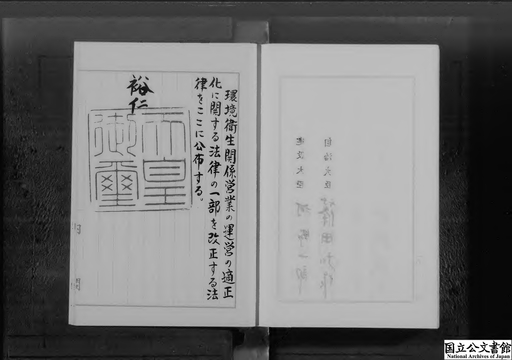 環境衛生関係営業の運営の適正
化に関する法律の一部を改正する法
律をここに公布する。
裕仁
天皇
御璽
自治大臣
建設大臣
国立公文書館
National Archives of Japan